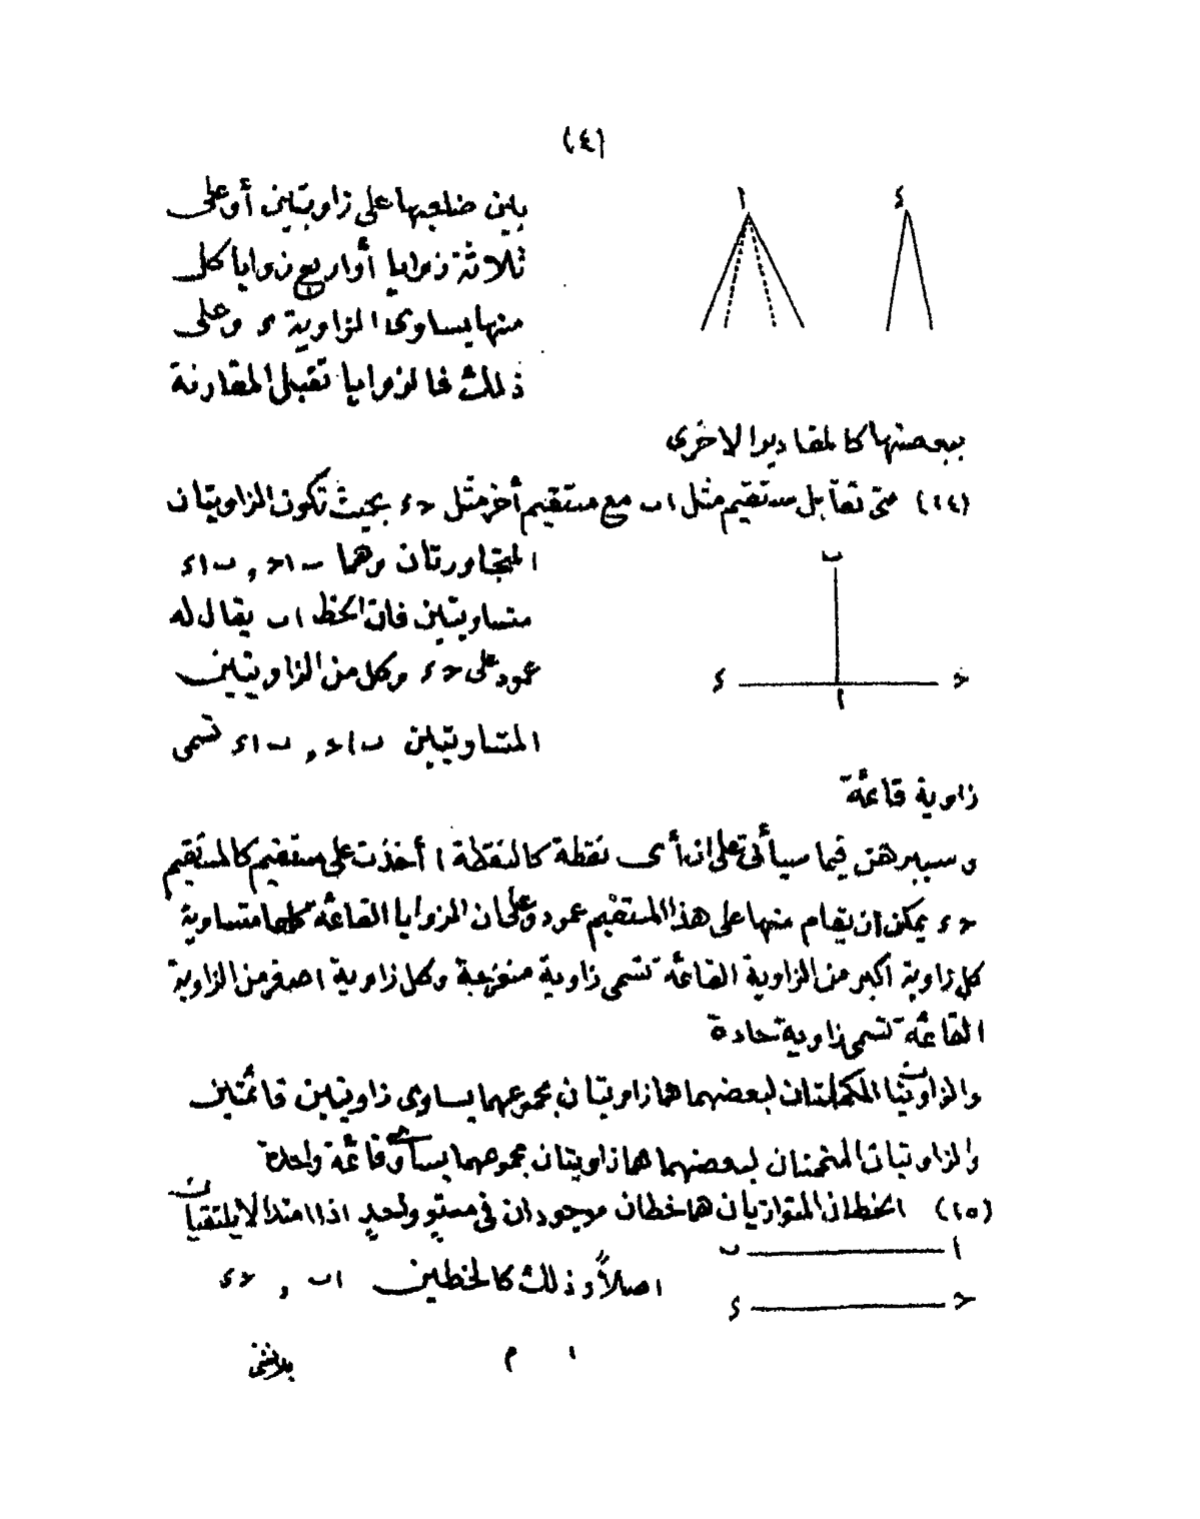 (٤)
ا
ء
بين ضلعيها على زاويتين أو على
ثلاثة زوايا أو اربع زوايا كل
منها يساوى الزاوية ء وعلى
ذلك فالزوايا تقبل المقارنة
ببعضها كالمقادير الاخرى
(١٤) متى تقابل مستقيم مثل اب مع مستقيم أخر مثل حء بحيث تكون الزاويتان
المتجاورتان وهما باح , باء
متساويتين فان الخط اب يقال له
عمود على حء وكل من الزاويتين
المتساويتين باح , باء تسمى
ب
ء
ح
ا
زاوية قائمة
وسيبرهن فيما سيأتى على ان أى نقطة كالنقطة ا أخذت على مستقيم كالمستقيم
حء يمكن ان يقام منها على هذا المستقيم عمود وعلى ان الزوايا القائمة كلها متساوية
كل زاوية اكبر من الزاوية القائمة تسمى زاوية منفرجة وكل زاوية اصغر من الزاوية
القائمة تسمى زاوية حادة
والزاويتان المكملتان لبعضهما هما زاويتان مجموعهما يساوى زاويتين قائمتين
والزاويتان المتممتان لبعضهما هما زاويتان مجموعهما يساوى قائمة واحدة
(١٥) الخطان المتوازيان هما خطان موجودان فى مستو واحد اذا امتدا لا يلتقيان
اصلاً وذلك كالخطين اب , حء
ا
ب
ح
ء
ا م